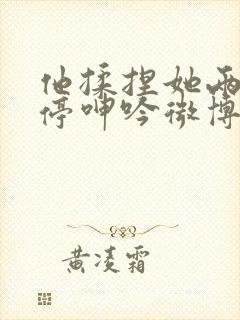 他揉捏她两
停呻吟微博
黄凌霜